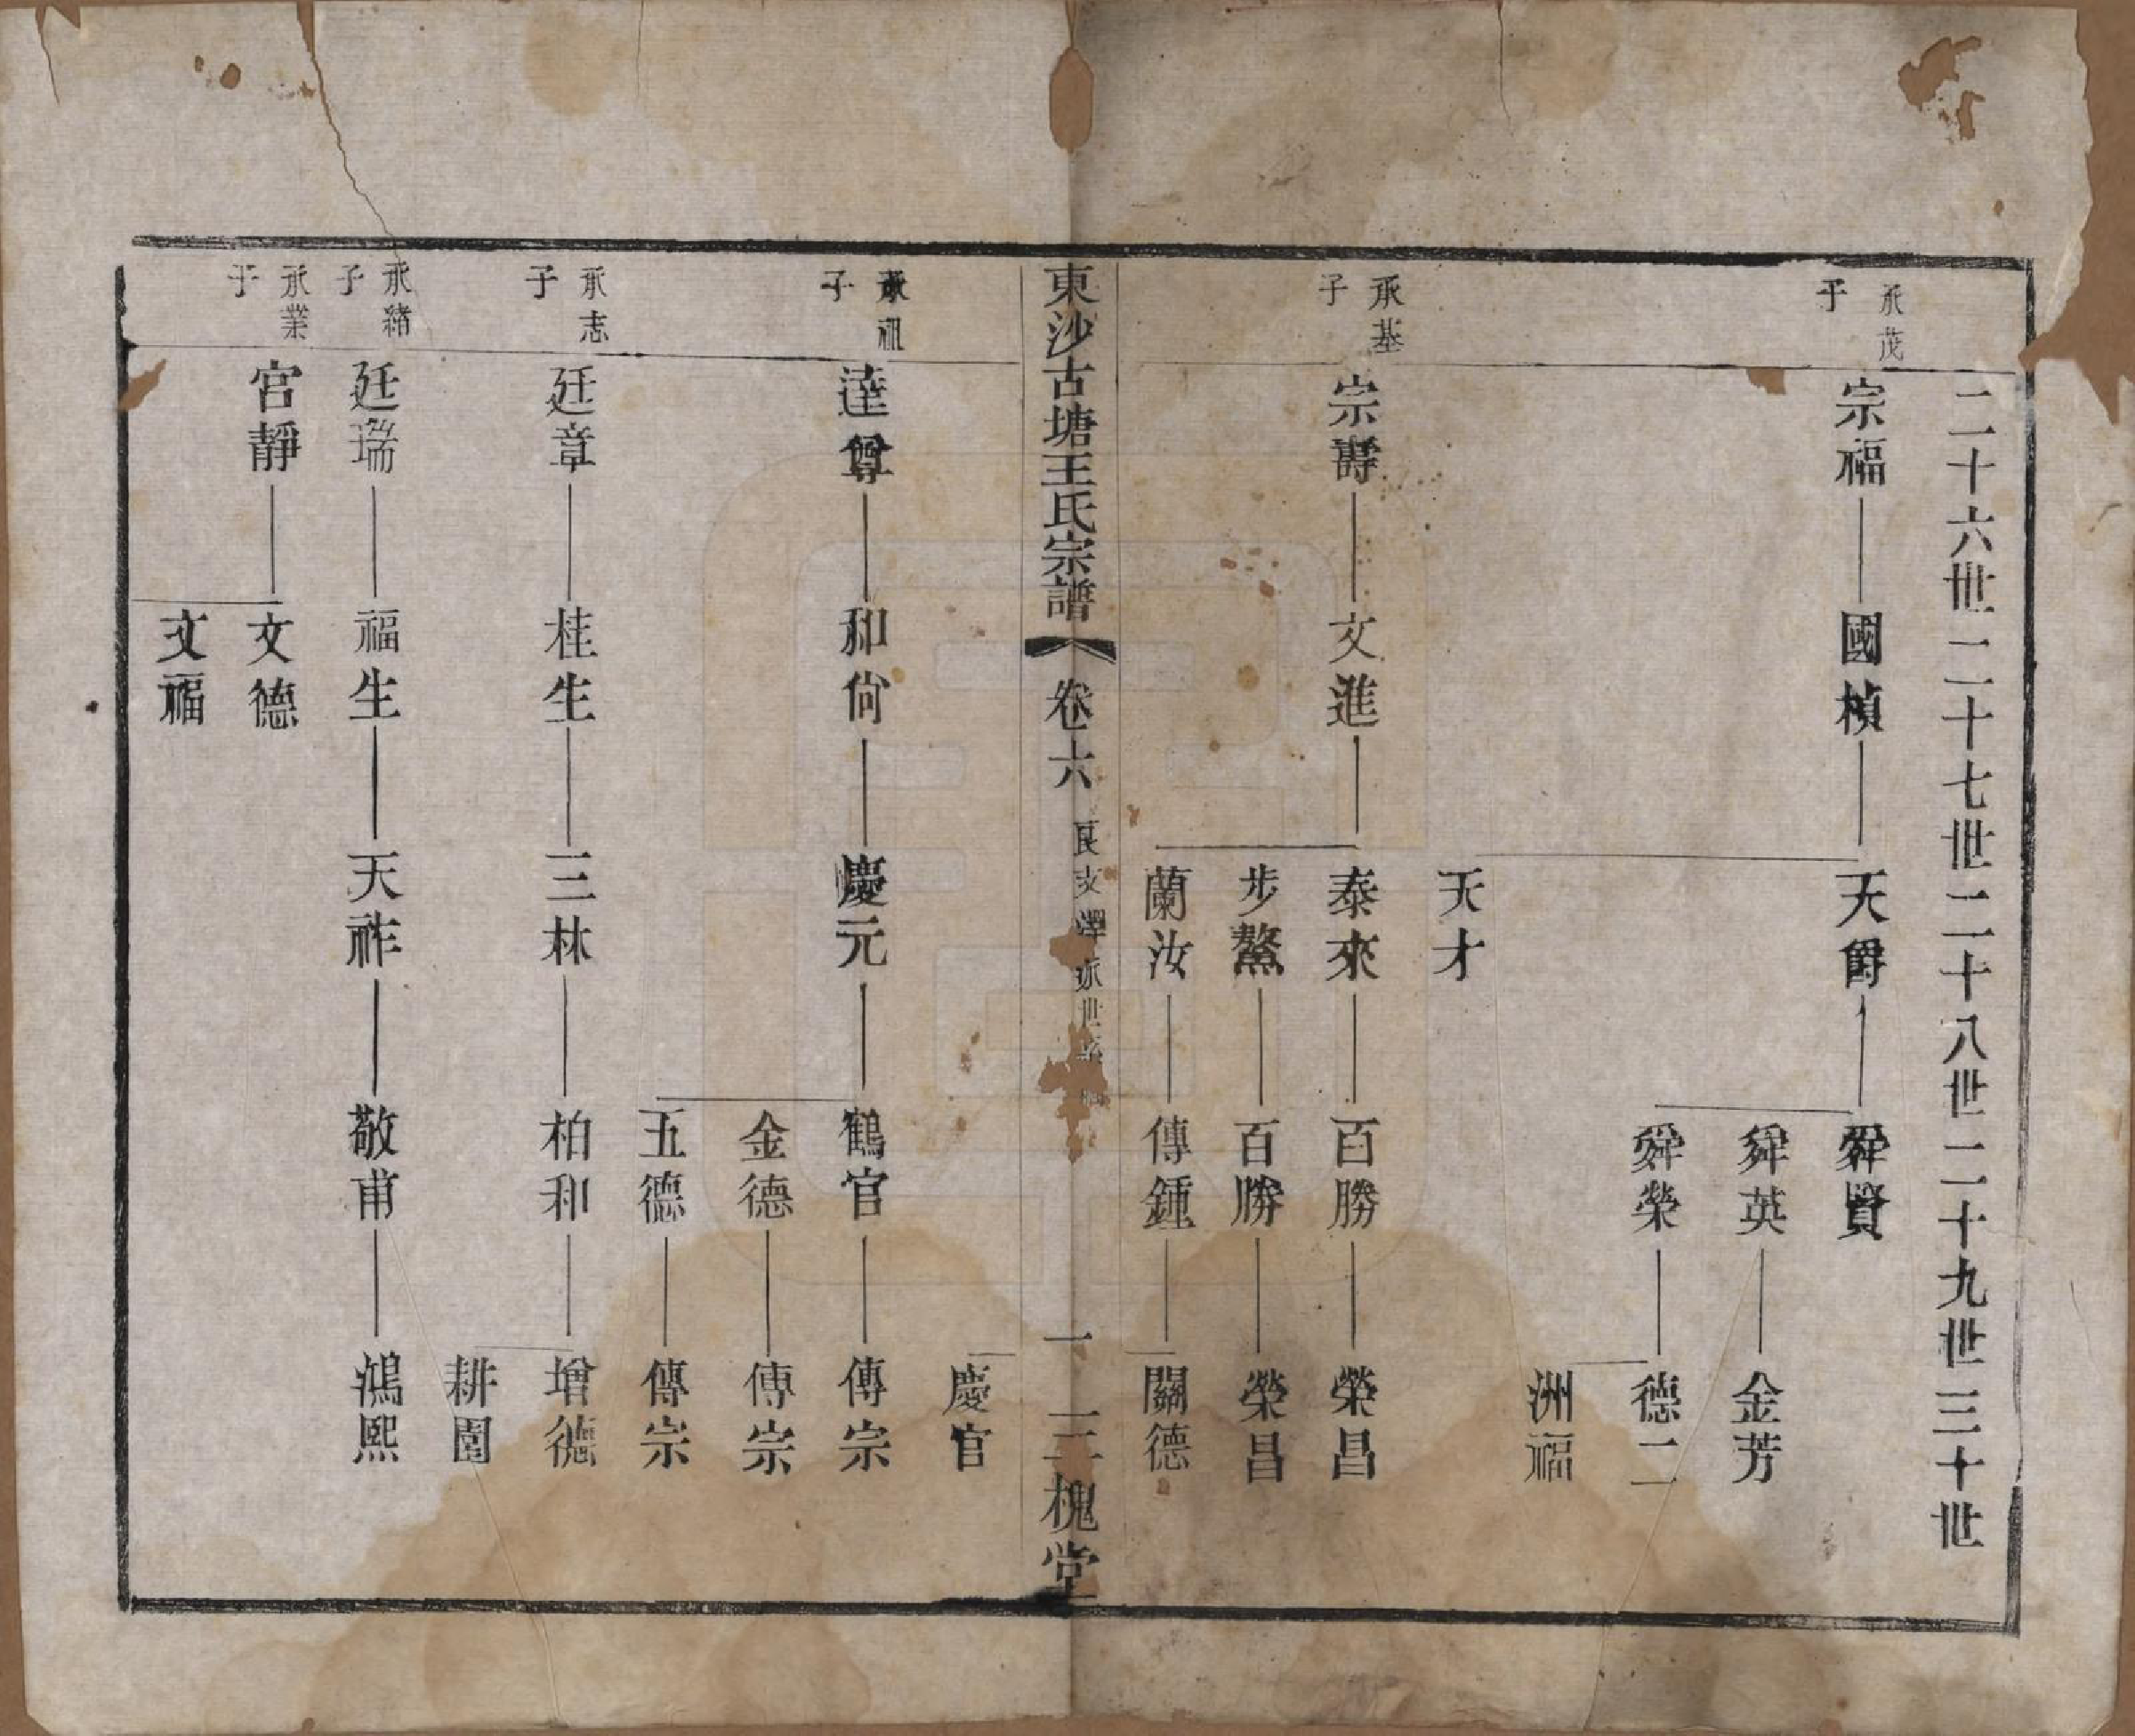 二十六世二十七世二十八世二十九世三十世
承茂子
宗福 國楨 天爵 舜賢
舜英 金芳
舜榮 德二
洲福
天才
承基子
宗壽 文進 泰來 百勝 榮昌
步鰲 百勝 榮昌
蘭汝 傳鍾 關德
東沙古塘王氏宗譜 卷六 良支澤承世 一 三槐堂
慶官
承祖子
達尊 和尚 慶元 鶴官 傳宗
金德 傳宗
五德 傳宗
承志子
廷章 桂生 三林 柏和 增德
耕園
承緒子
廷瑞 福生 天祚 敬甫 鴻熙
承業子
宫靜 文德
文福